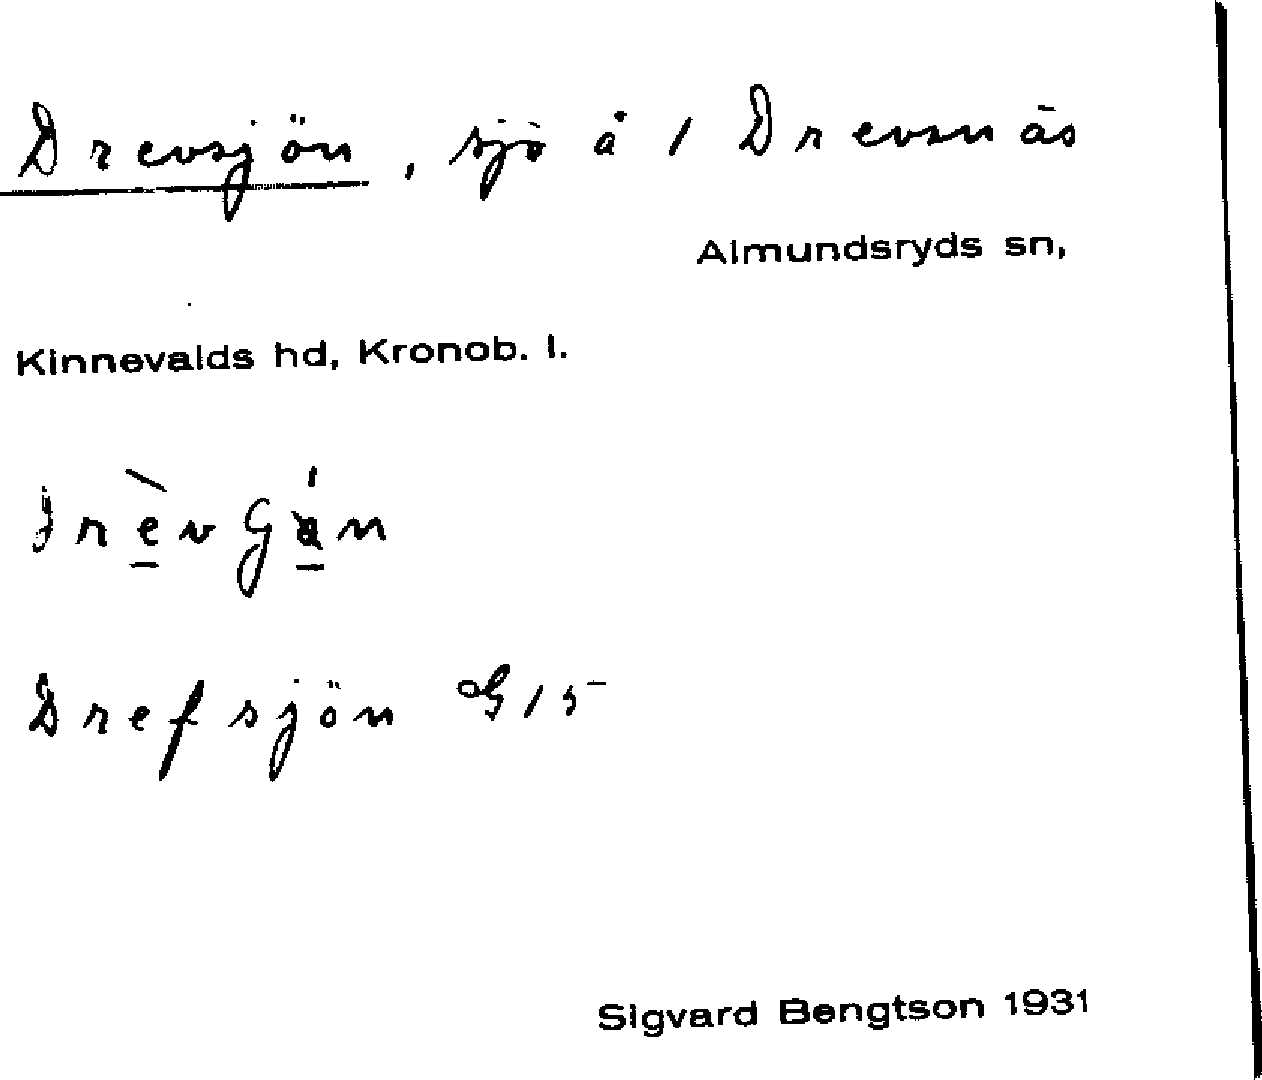 Drevsjön, sjö å 1 Drevsnäs
Almundsryds sn,
Kinnevalds hd, Kronob. l.
Drefsjön G15
Sigvard Bengtson 1931